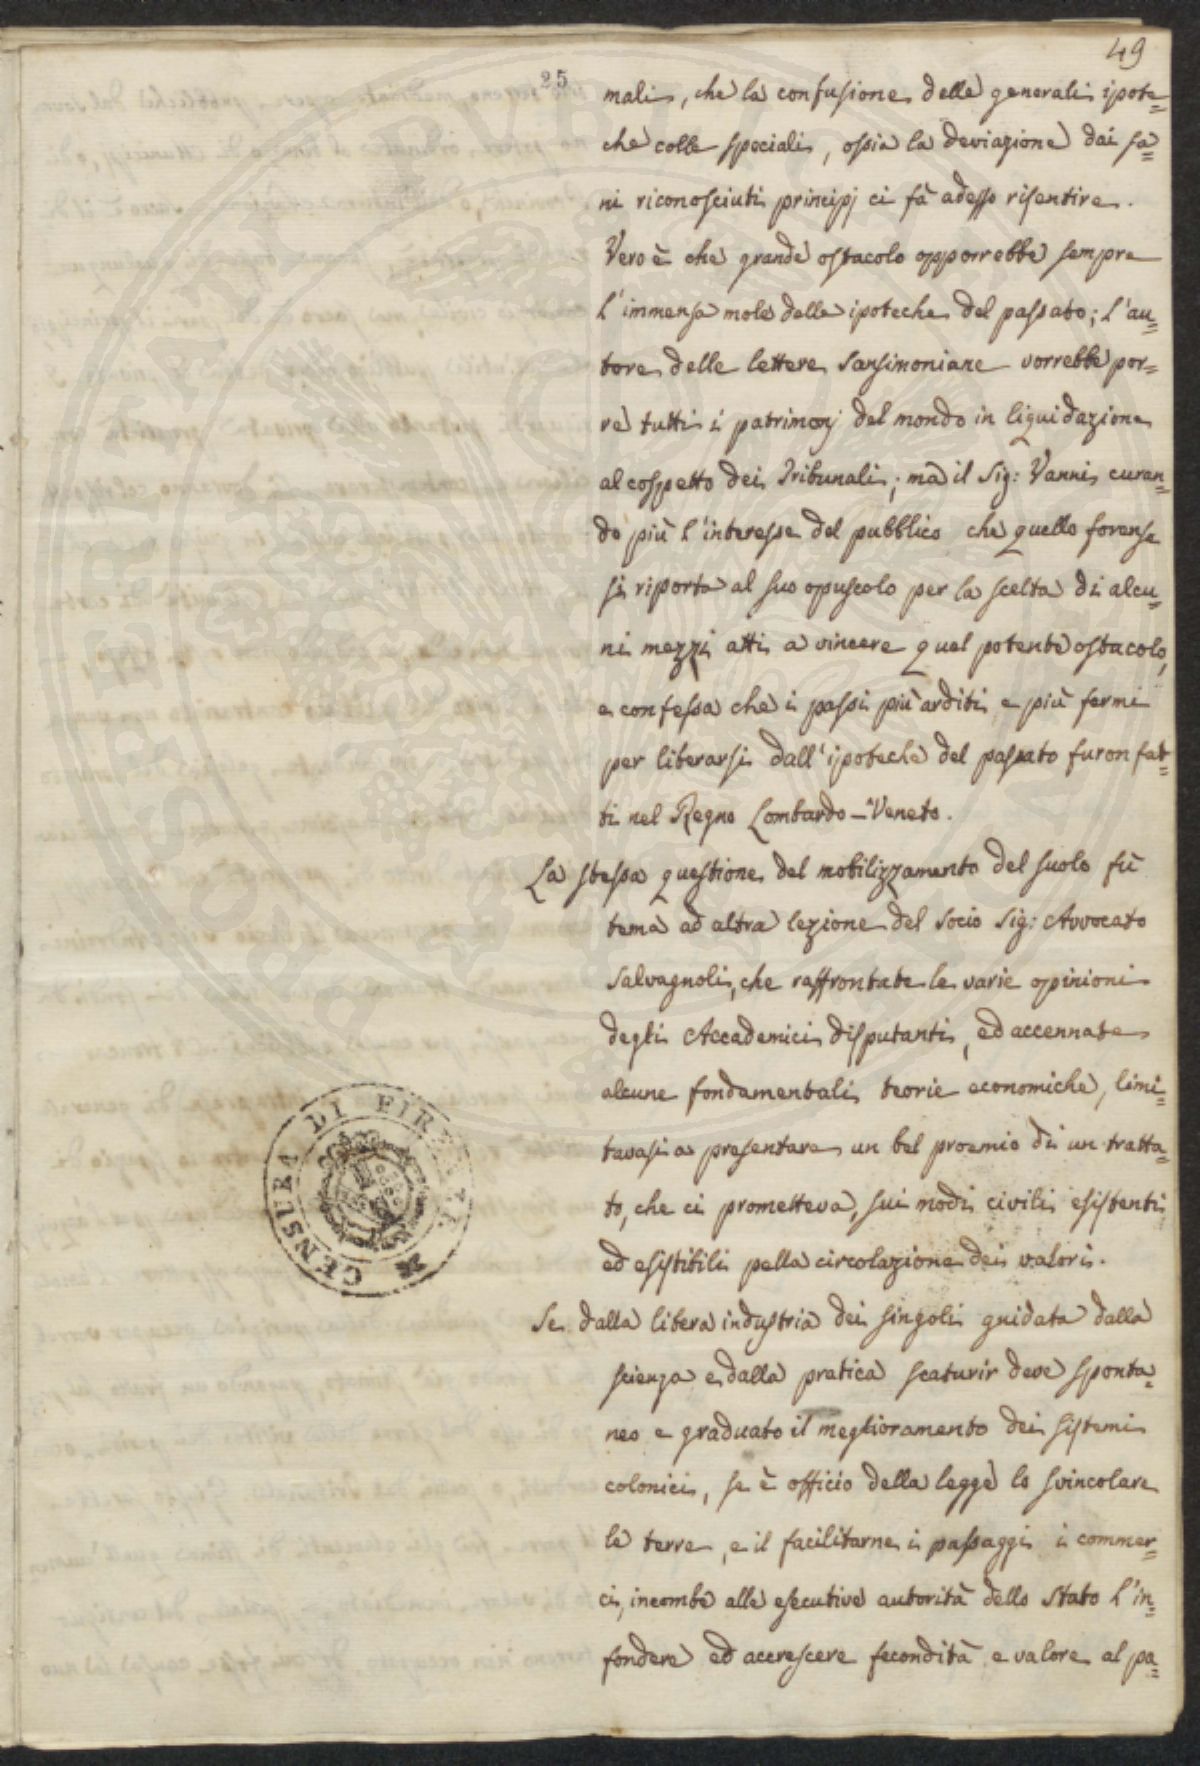 49
25
mali, che la confusione delle generali ipote=
che colle speciali, ossia la deviazione dai sa=
ni riconosciuti principj ci fà adesso risentire.
Vero è che grande ostacolo opporrebbe sempre
l'immensa mole delle ipoteche del passato; l'au=
tore delle lettere sansimoniane vorrebbe por=
re tutti i patrimonj del mondo in liquidazione
al cospetto dei Tribunali; ma il Sig: Vanni curan=
do più l'interesse del pubblico che quello forense
si riporta al suo opuscolo per la scelta di alcu=
ni mezzi atti a vincere quel potente ostacolo,
e confessa che i passi più arditi e più fermi
per liberarsi dall'ipoteche del passato furon fat=
ti nel Regno Lombardo-Veneto.
La stessa questione del mobilizzamento del suolo fù
tema ad altra lezione del Socio Sig: Avvocato
Salvagnoli, che raffrontate le varie opinioni
degli Accademici disputanti, ed accennate
alcune fondamentali teorie economiche, limi=
tavasi a presentare un bel proemio di un tratta=
to, che ci prometteva, sui modi civili esistenti
ed esistibili pella circolazione dei valori.
Se dalla libera industria dei singoli guidata dalla
scienza e dalla pratica scaturir deve sponta=
neo e graduato il meglioramento dei sistemi
colonici, se è officio della legge lo svincolare
le terre, e il facilitarne i passaggi i commer=
ci, incombe alle esecutive autorità dello Stato l'in=
fondere ed accrescere fecondità e valore al pa=
CENSURA DI FIRENZE
PROSPERITATI PUBLICAE